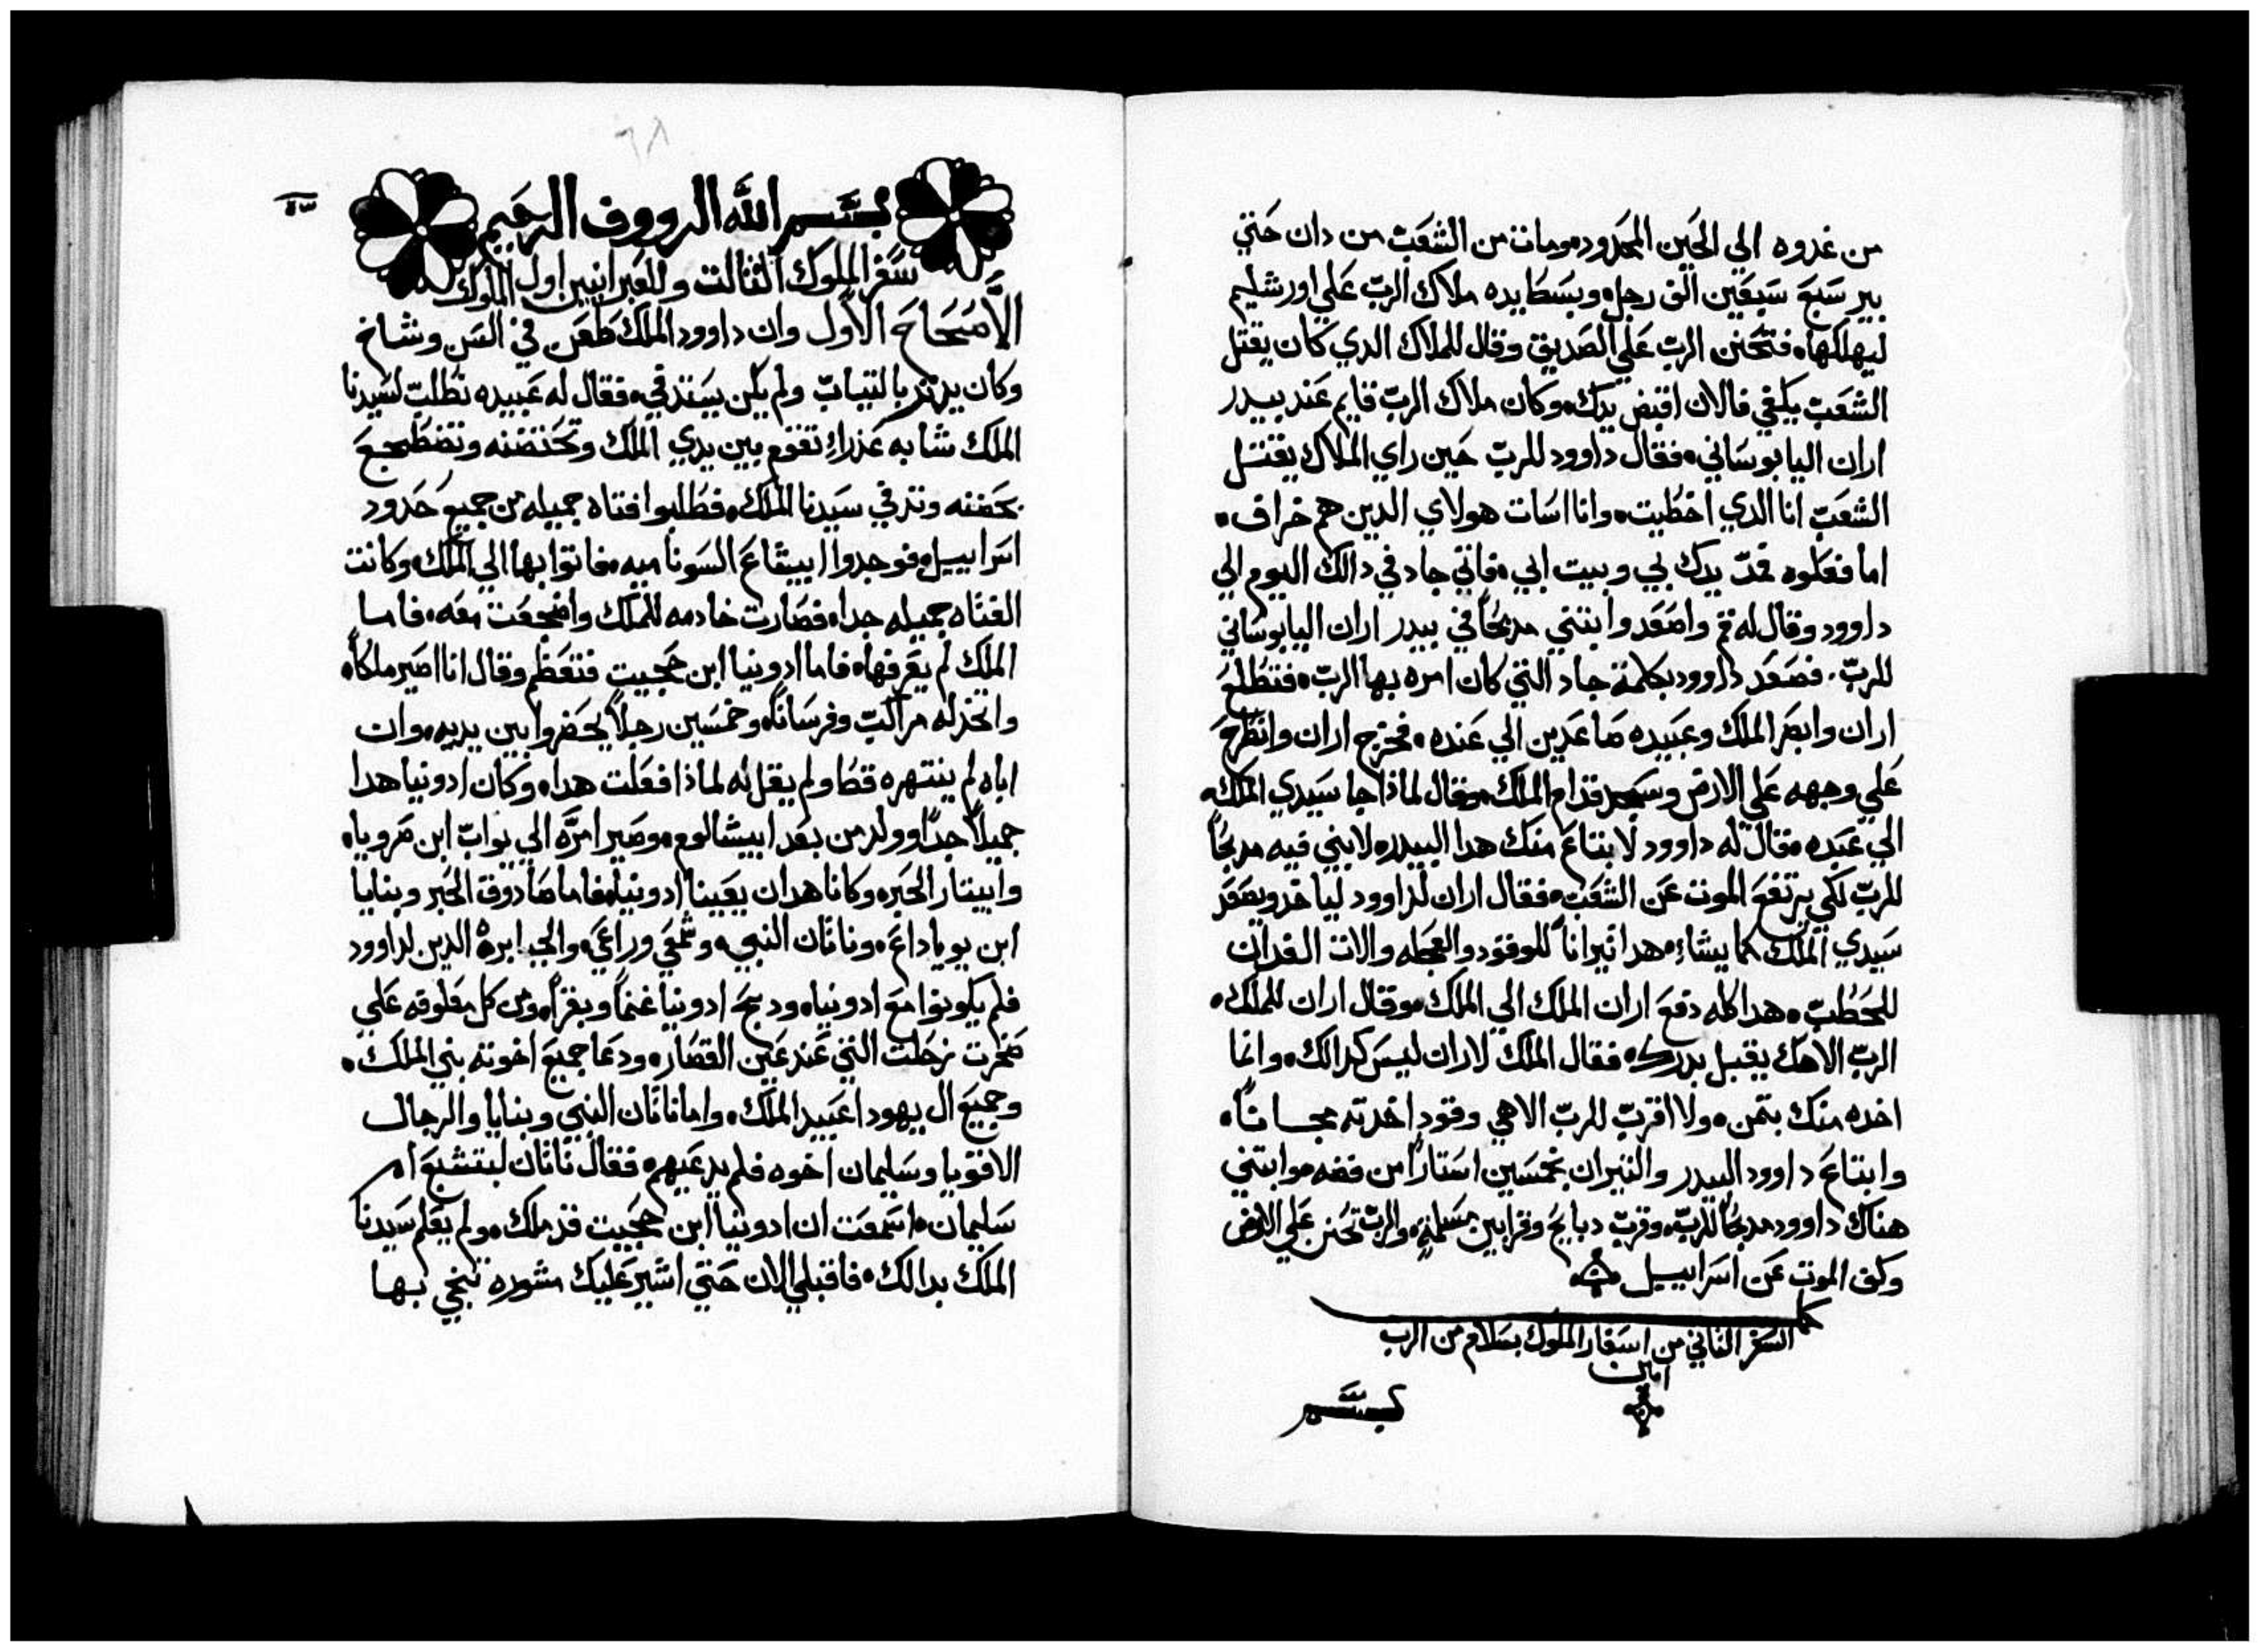 من غدوه الي الحين المحدود ومات من الشعب من دان حتي
بير سبع سبعين الف رجل وبسط يده ملاك الرب علي اورشليم
ليهلكها فتحنن الرب علي الصديق وقال للملاك الدي كان يقتل
الشعب يكفي فالان اقبض يدك وكان ملاك الرب قايم عند بيدر
اران اليابوساني فقال داوود للرب حين راي الملاك يقتل
الشعب انا الدي اخطيت وانا اسات هولاي الدين هم خراف
اما فعلوه قد يدك بي وبيت ابي فاتي جاد في دالك اليوم الي
داوود وقال له قم واصعد وابتني مدبحا في بيدر اران اليابوساني
للرب فصعد داوود بكلمة جاد التي كان امره بها الرب فتطلع
اران وابصر الملك وعبيده صاعدين الي عنده فخرج اران وانطرح
علي وجهه علي الارض وسجد قدام الملك وقال لماذا جا سيدي الملك
الي عبده فقال له داوود لابتاع منك هدا البيدر لابني فيه مدبحا
للرب لكي يرتفع الموت عن الشعب فقال اران لداوود لياخد ويصعد
سيدي الملك كما يشاء هدا تيرانا للوقود والعجله والات الفدان
للحطب هدا كله دفع اران الملك الي الملك وقال اران للملك
الرب الاهك يقبل بدرك فقال الملك لاران ليس كدالك وانما
اخده منك بتمن ولا اقرب للرب الاهي وقود اخدته مجانا
وابتاع داوود البيدر والتيران بخمسين استارا من فضه وابتني
هناك داوود مدبحا للرب وقرب دبايح وقرابين مسلمة والرب تحنن علي الارض
وكف الموت عن اسراييل
كمل السفر الثاني من اسفار الملوك بسلام من الرب
امين
بسم
٦٨
بسم الله الرووف الرحيم
سفر الملوك الثالت وللعبرانيين اول الملوك
الأصحاح الاول وان داوود الملك طعن في السن وشاخ
وكان يدتر بالتياب ولم يكن يستدفي فقال له عبيده نطلب لسيدنا
الملك شابه عذراء تقوم بين يدي الملك وتحتضنه وتضطجع
بحضنه وتدفي سيدنا الملك فطلبوا فتاه جميله من جميع حدود
اسراييل فوجدوا ابيشاع السوناميه فاتوا بها الي الملك وكانت
الفتاه جميله جدا فصارت خادمه للملك واضجعت معه فاما
الملك لم يعرفها فاما ادونيا ابن حجيت فتعظم وقال انا اصير ملكا
واتخذ له مراكب وفرسانا وخمسين رجلا يحضروا بين يديه وان
اباه لم ينتهره قط ولم يقل له لماذا فعلت هدا وكان ادونيا هدا
جميلا جدا وولد من بعد ابيشالوم وصير امره الي يواب ابن صرويا
وابيتار الحبر وكانا هدان يعينا ادونيا فاما صادوق الحبر وبنايا
ابن يوياداع وناتان النبي وشمعي وراعي والجبابرة الدين لداوود
فلم يكونوا مع ادونيا ودبح ادونيا غنما وبقرا ومن كل معلوفه علي
صخرت زحلت التي عند عين القصار ودعا جميع اخوته بني الملك
وجميع ال يهودا عبيد الملك واما ناتان النبي وبنايا والرجال
الاقويا وسليمان اخوه فلم يدعيهم فقال ناتان لبتشبع ام
سليمان اسمعت ان ادونيا ابن حجيت قد ملك ولم يعلم سيدنا
الملك بدالك فاقبلي الان حتي اشير عليك مشوره تنجي بها